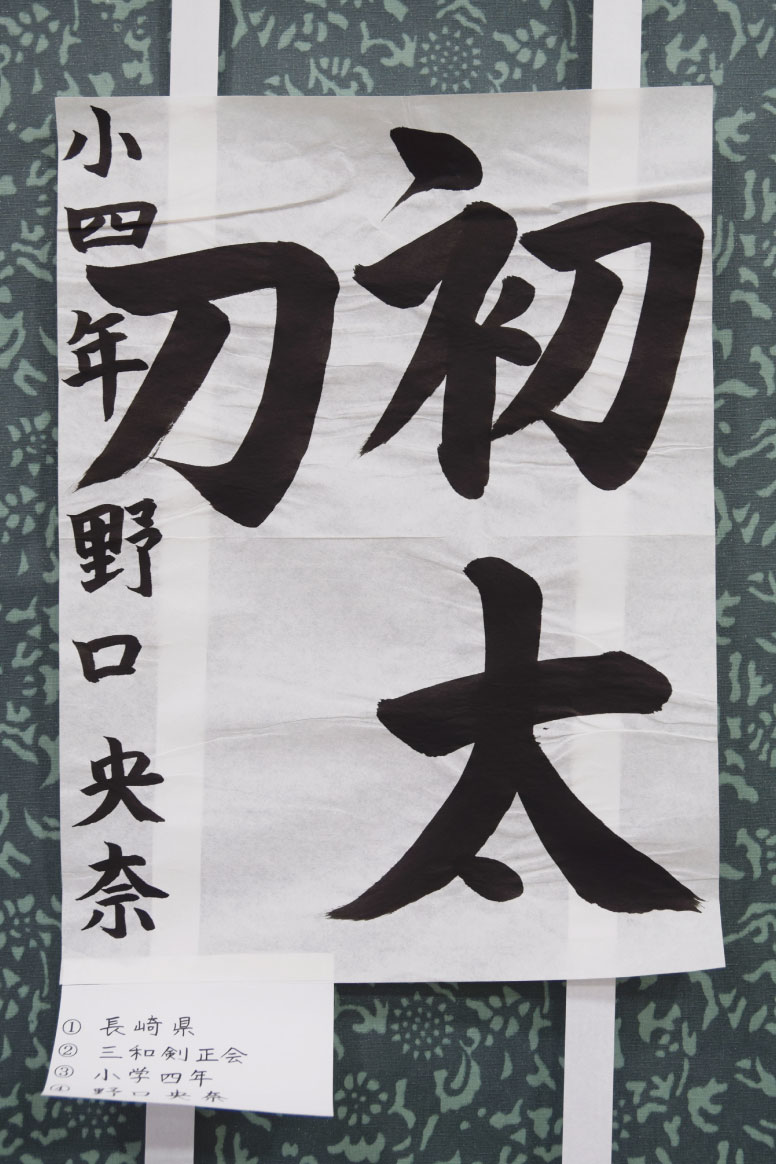 初太
刀
小四年 野口 央奈
① 長崎県
② 三和剣正会
③ 小学四年
④ 野口央奈